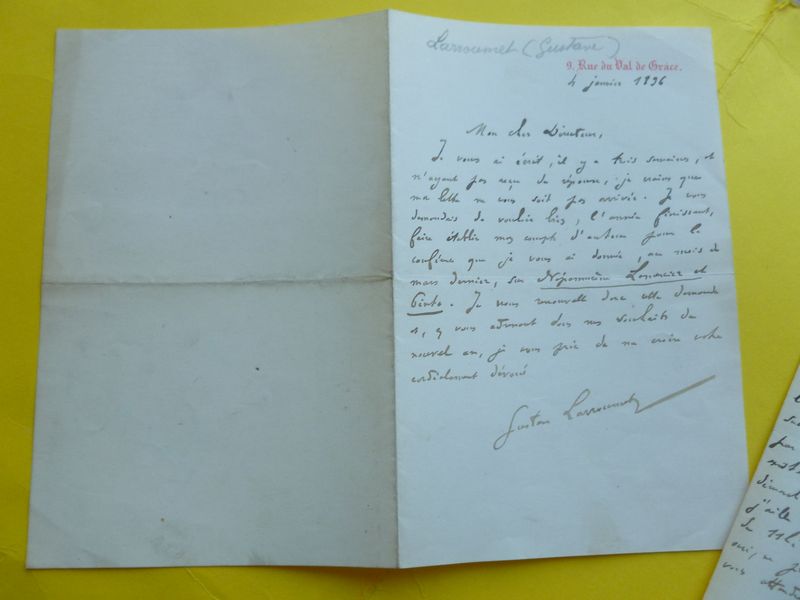 Larroumet (Gustave)
9, Rue du Val de Grâce.
4 janvier 1896
Mon cher Directeur,
Je vous ai écrit, il y a trois semaines, et
n'ayant pas reçu de réponse, je crains que
ma lettre ne vous soit pas arrivée. Je vous
demandais de vouloir bien, l'année finissant,
faire établir mon compte d'auteur pour la
conférence que je vous ai donnée, au mois de
mars dernier, sur Népomucène Lemercier et
Pinto. Je vous renouvelle donc cette demande
et, y vous adressant mes souhaits de
nouvel an, je vous prie de me croire votre
cordialement dévoué
Gustave Larroumet
j'aille
de 11h.